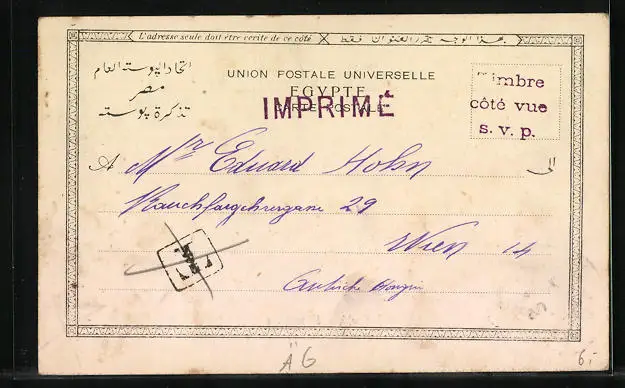 L'adresse seule doit être écrite de ce côté
يكتب بهذا الوجه العنوان فقط
اتحاد البوستة العام
مصر
تذكرة بوستة
UNION POSTALE UNIVERSELLE
EGYPTE
CARTE POSTALE
IMPRIMÉ
Timbre
côté vue
s. v. p.
A Mr Eduard Hohn الى
29
Wien 14
T
ÄG
6.-